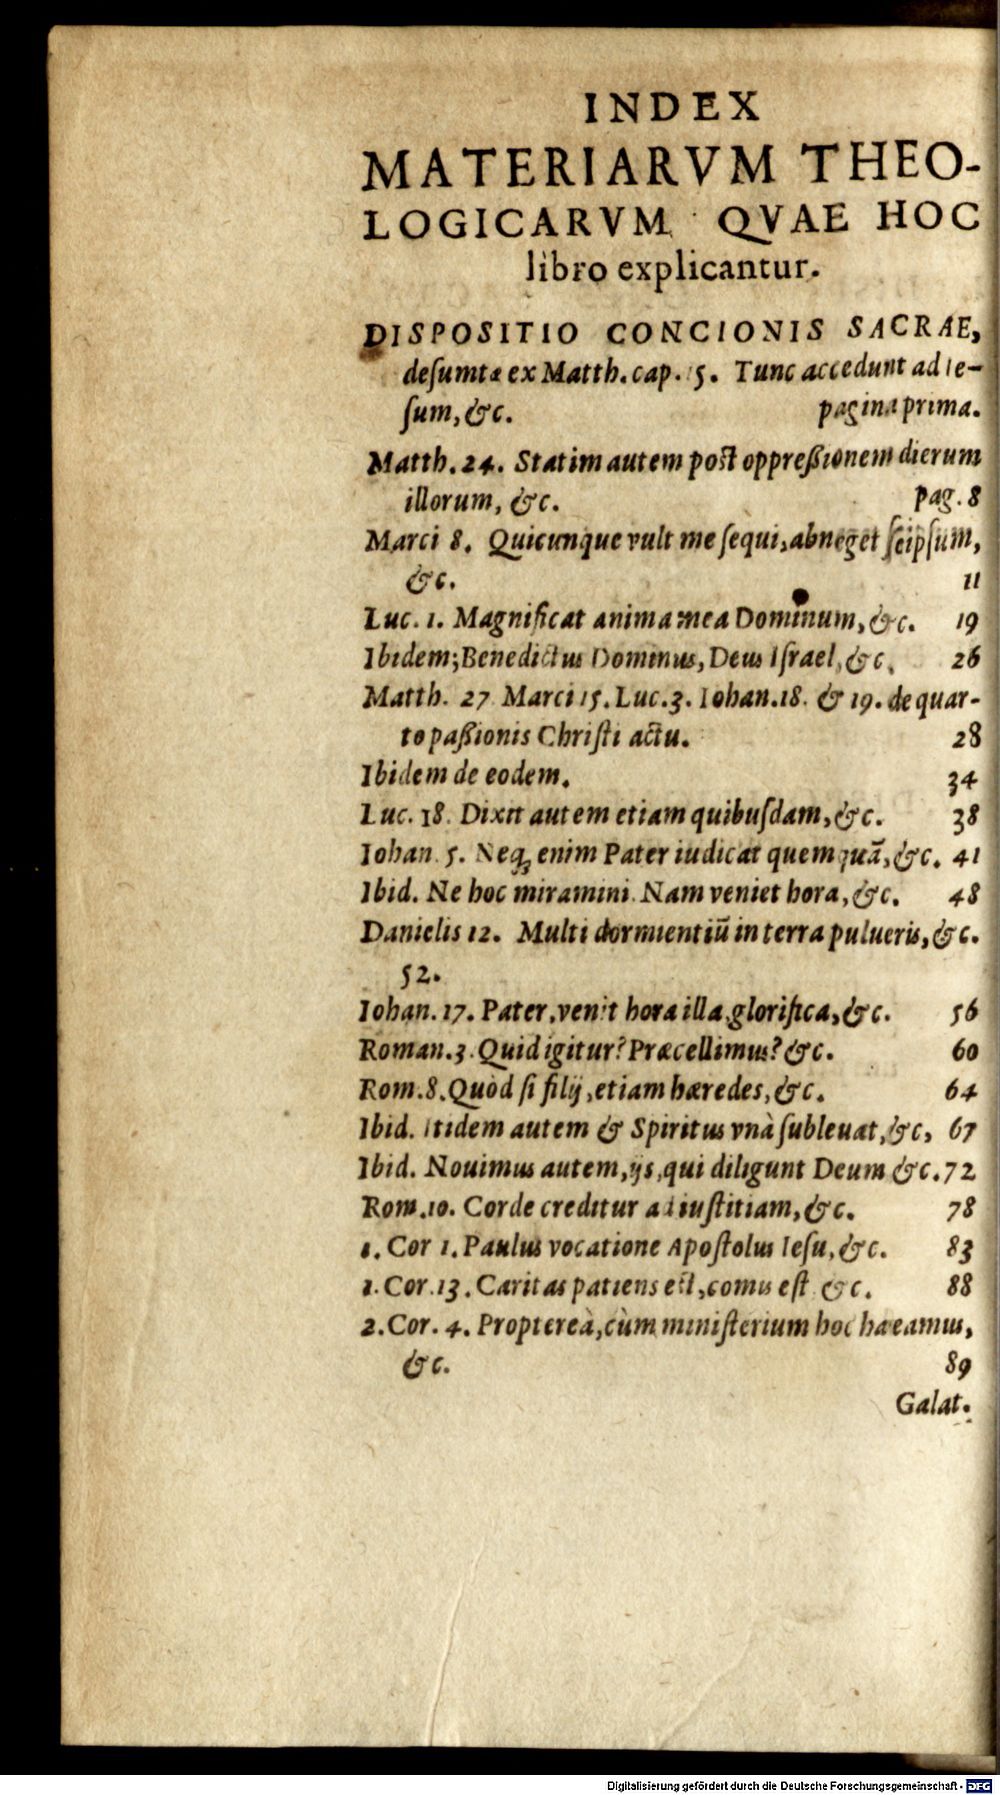 INDEX
MATERIARVM THEO-
LOGICARVM QVAE HOC
libro explicantur.
DISPOSITIO CONCIONIS SACRAE,
desumta ex Matth. cap. 15. Tunc accedunt ad Ie-
sum, &c. pagina prima.
Matth. 24. Statim autem post oppreßionem dierum
illorum, &c. pag. 8
Marci 8. Quicunque vult me sequi, abneget seipsum,
&c. 11
Luc. 1. Magnificat anima mea Dominum, &c. 19
Ibidem; Benedictus Dominus, Deus Israel, &c. 26
Matth. 27 Marci 15. Luc. 3. Iohan. 18. & 19. de quar-
to paßionis Christi actu. 28
Ibidem de eodem. 34
Luc. 18. Dixit autem etiam quibusdam, &c. 38
Iohan. 5. Neq; enim Pater iudicat quemquã, &c. 41
Ibid. Ne hoc miramini. Nam veniet hora, &c. 48
Danielis 12. Multi dormientiũ in terra pulueris, &c.
52.
Iohan. 17. Pater, venit hora illa, glorifica, &c. 56
Roman. 3. Quid igitur? Præcellimus? &c. 60
Rom. 8. Quòd si filij, etiam hæredes, &c. 64
Ibid. Itidem autem & Spiritus vnà subleuat, &c, 67
Ibid. Nouimus autem, ijs, qui diligunt Deum &c. 72
Rom. 10. Corde creditur ad iustitiam, &c. 78
1. Cor 1. Paulus vocatione Apostolus Iesu, &c. 83
1. Cor. 13. Caritas patiens est, comis est &c. 88
2. Cor. 4. Propterea, cùm ministerium hoc habeamus,
&c. 89
Galat.
Digitalisierung gefördert durch die Deutsche Forschungsgemeinschaft - DFG